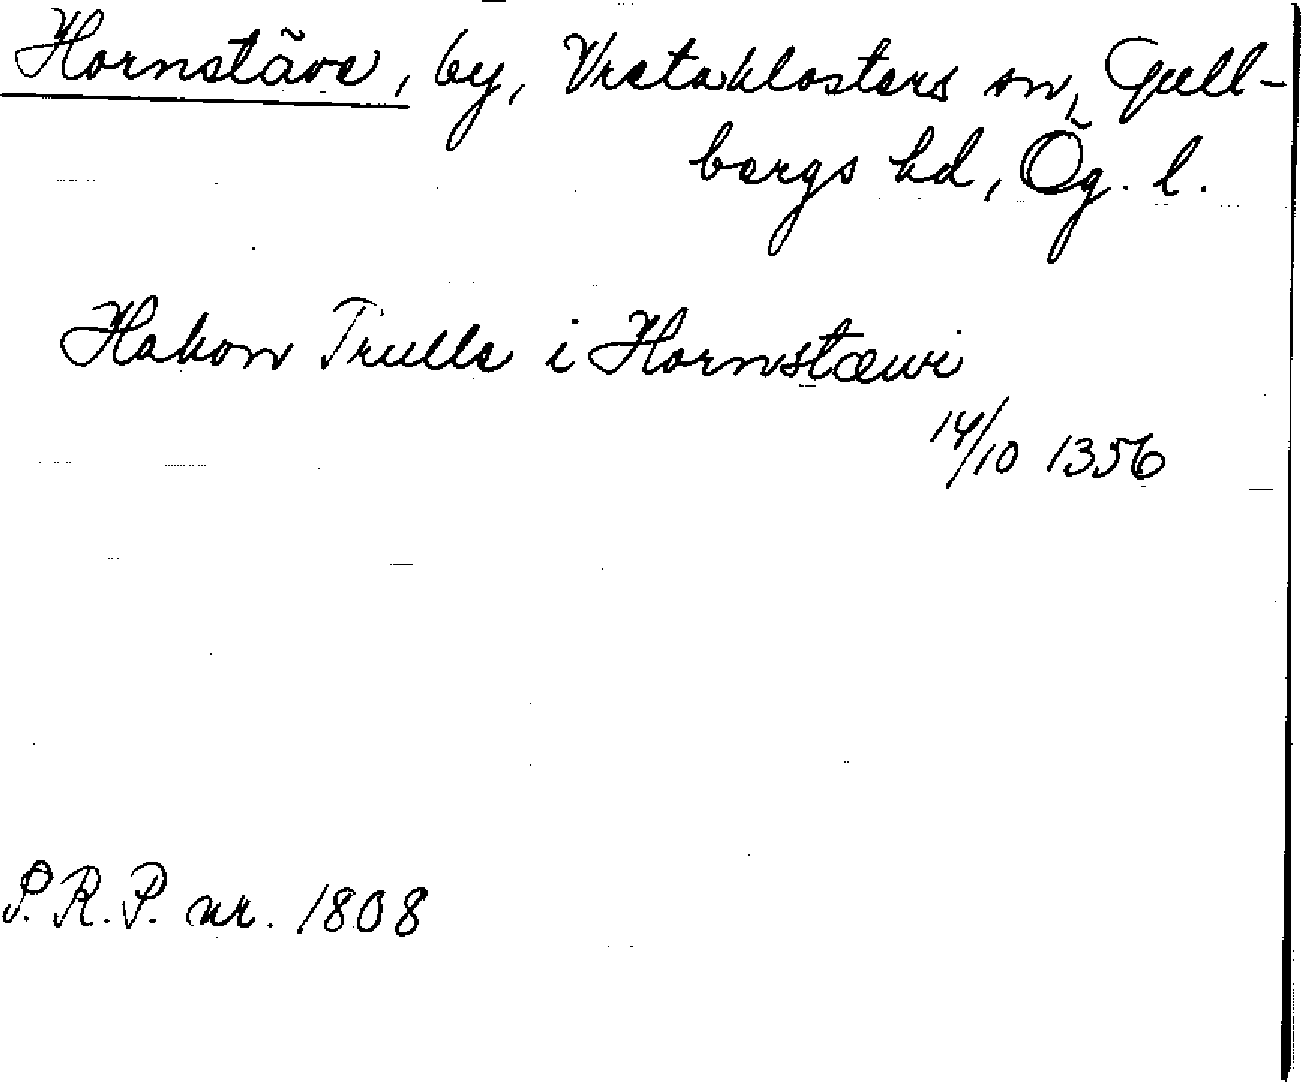 Hornstäve, by, Vretaklosters sn, Gull-
bergs hd, Ög. l.
Hakon Trulle i Hornstæwi
14/10 1356
P.R.P. nr. 1808